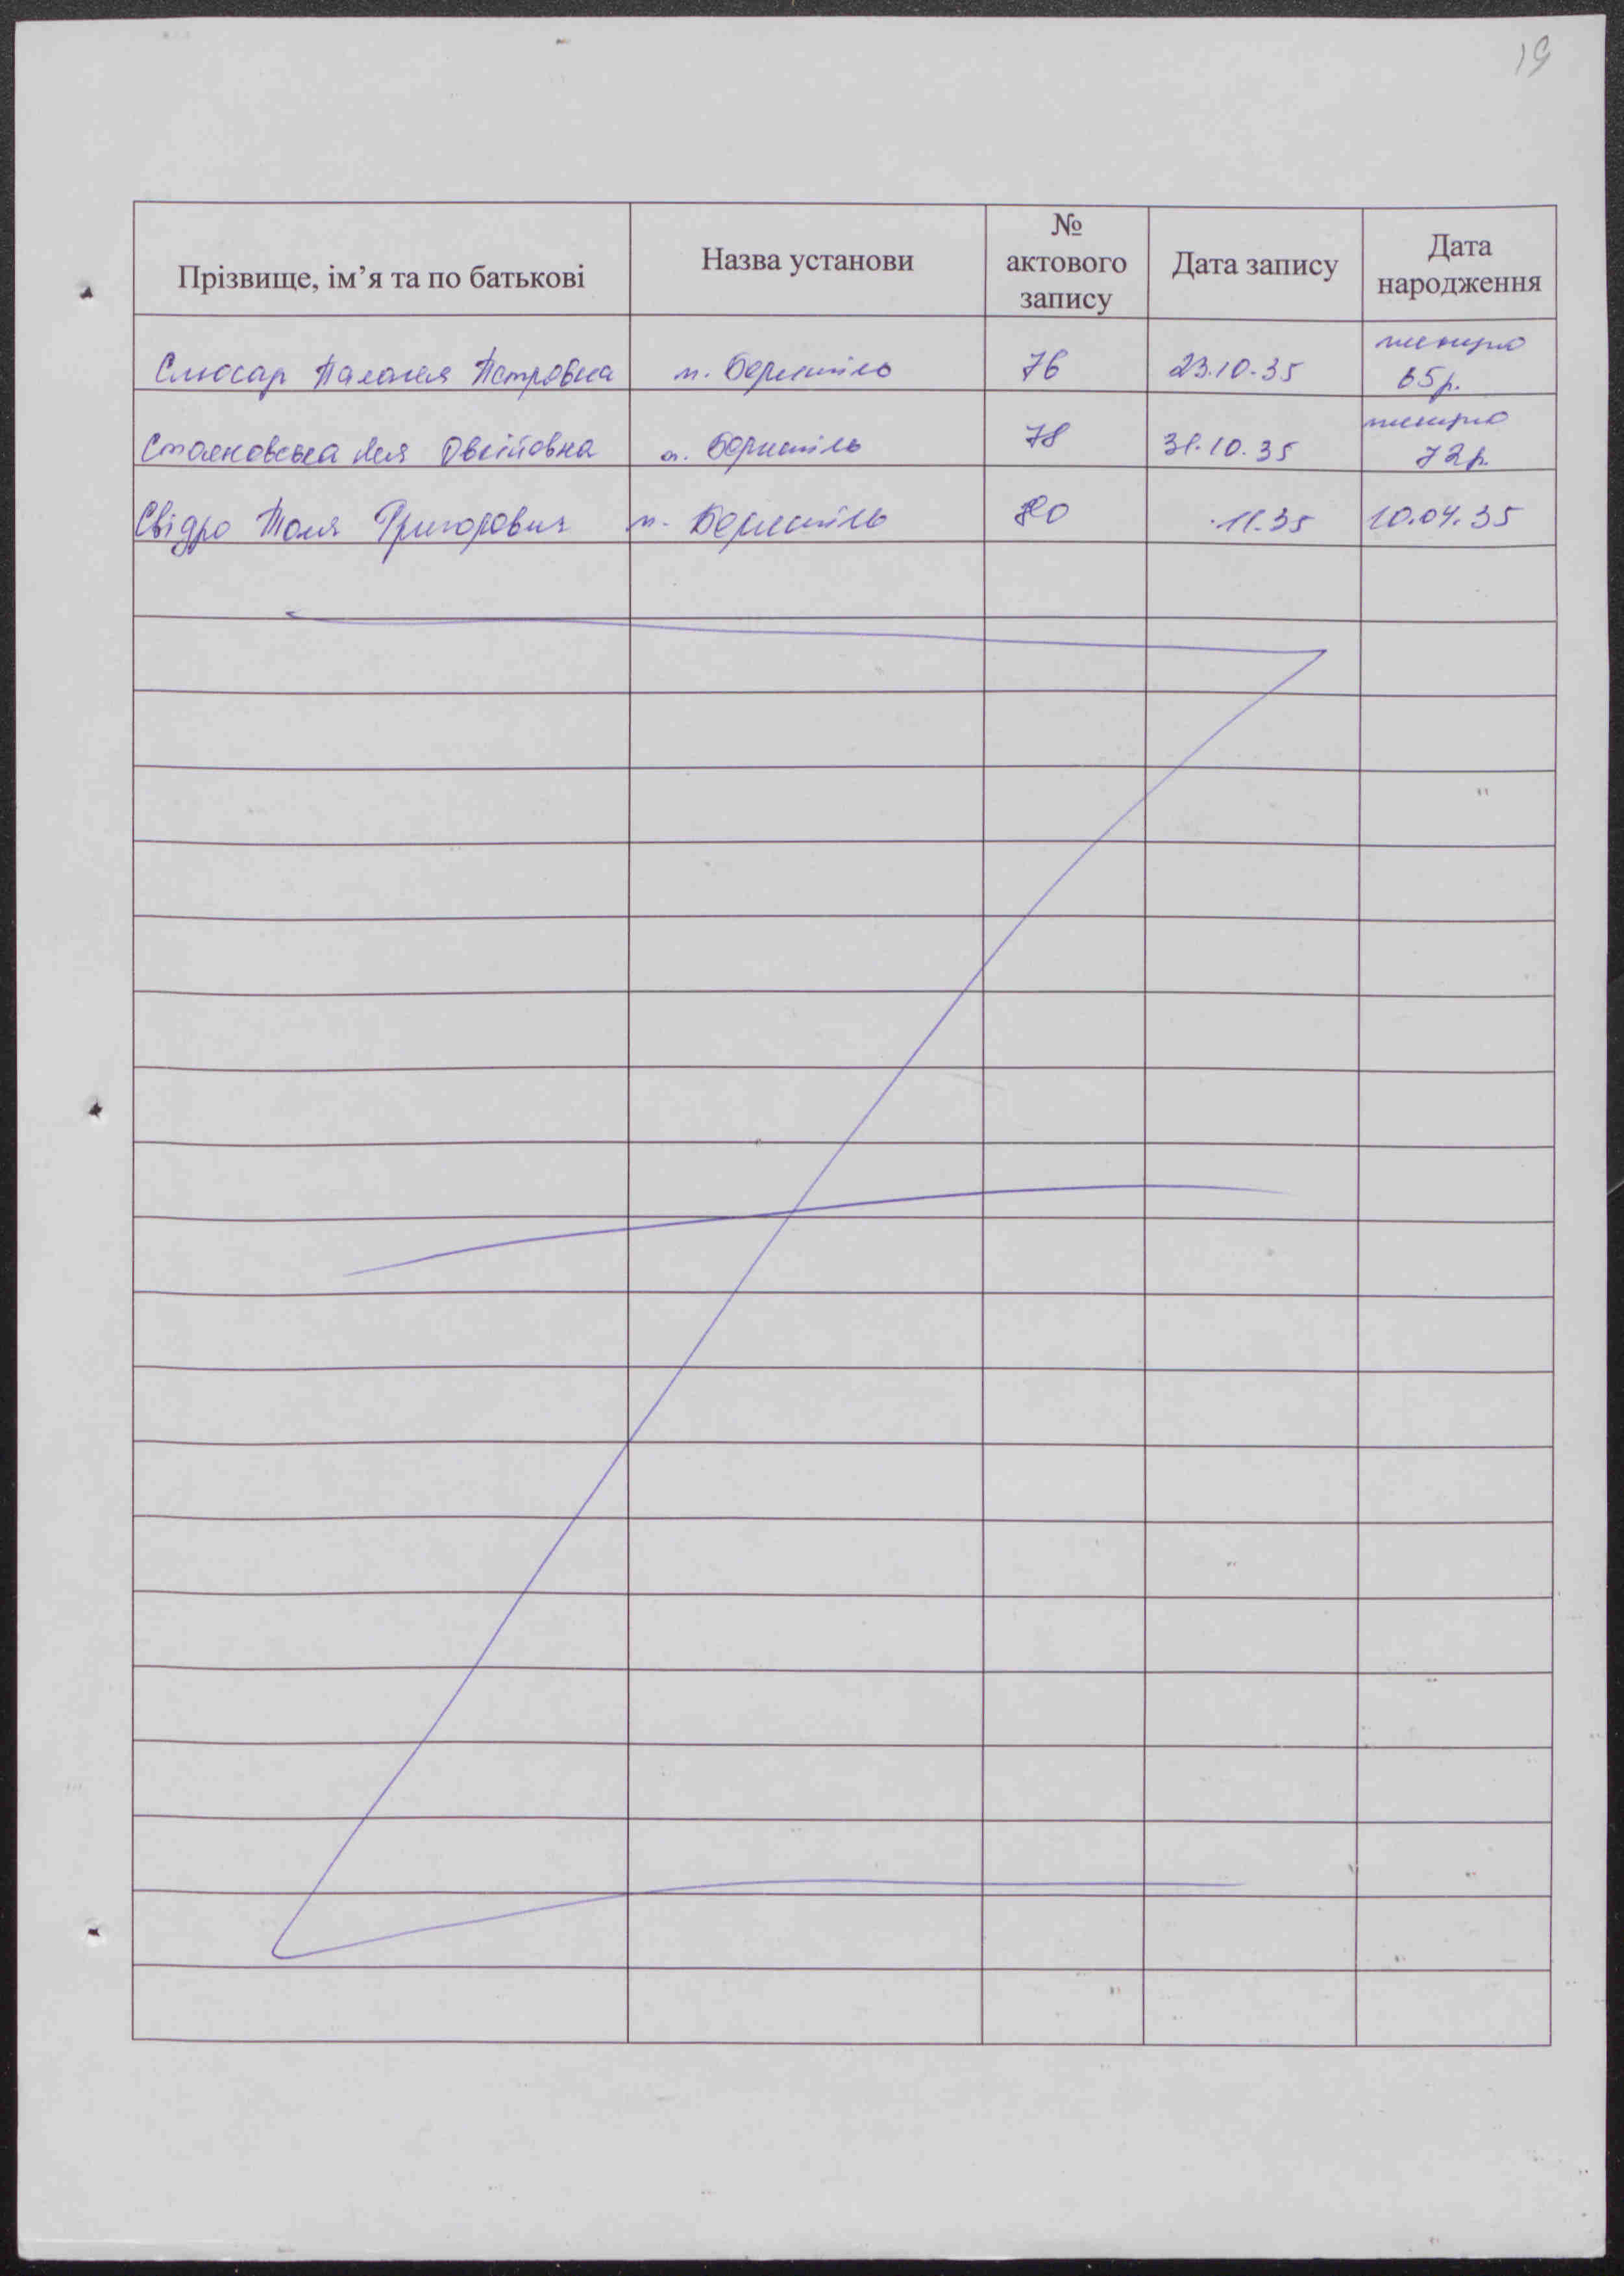 19
Прізвище, ім’я та по батькові | Назва установи | № актового запису | Дата запису | Дата народження
Слюсар Палагея Петровна | м. Бориспіль | 76 | 23.10.35 | 65р.
Стояновська Лея Овсійовна | м. Бориспіль | 78 | 31.10.35 | 72р.
Свідро Толя Григорович | м. Бориспіль | 80 | .11.35 | 10.04.35